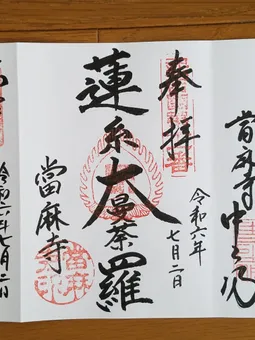 當麻寺中之坊
奉拝
令和六年
七月二日
蓮糸大曼荼羅
當麻寺
令和六年七月二日